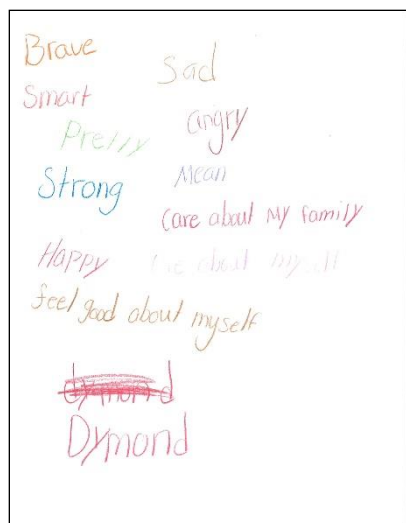 Brave
Sad
Smart
angry
Pretty
Mean
Strong
Care about My family
Happy
Care about myself
feel good about myself
dymond
Dymond